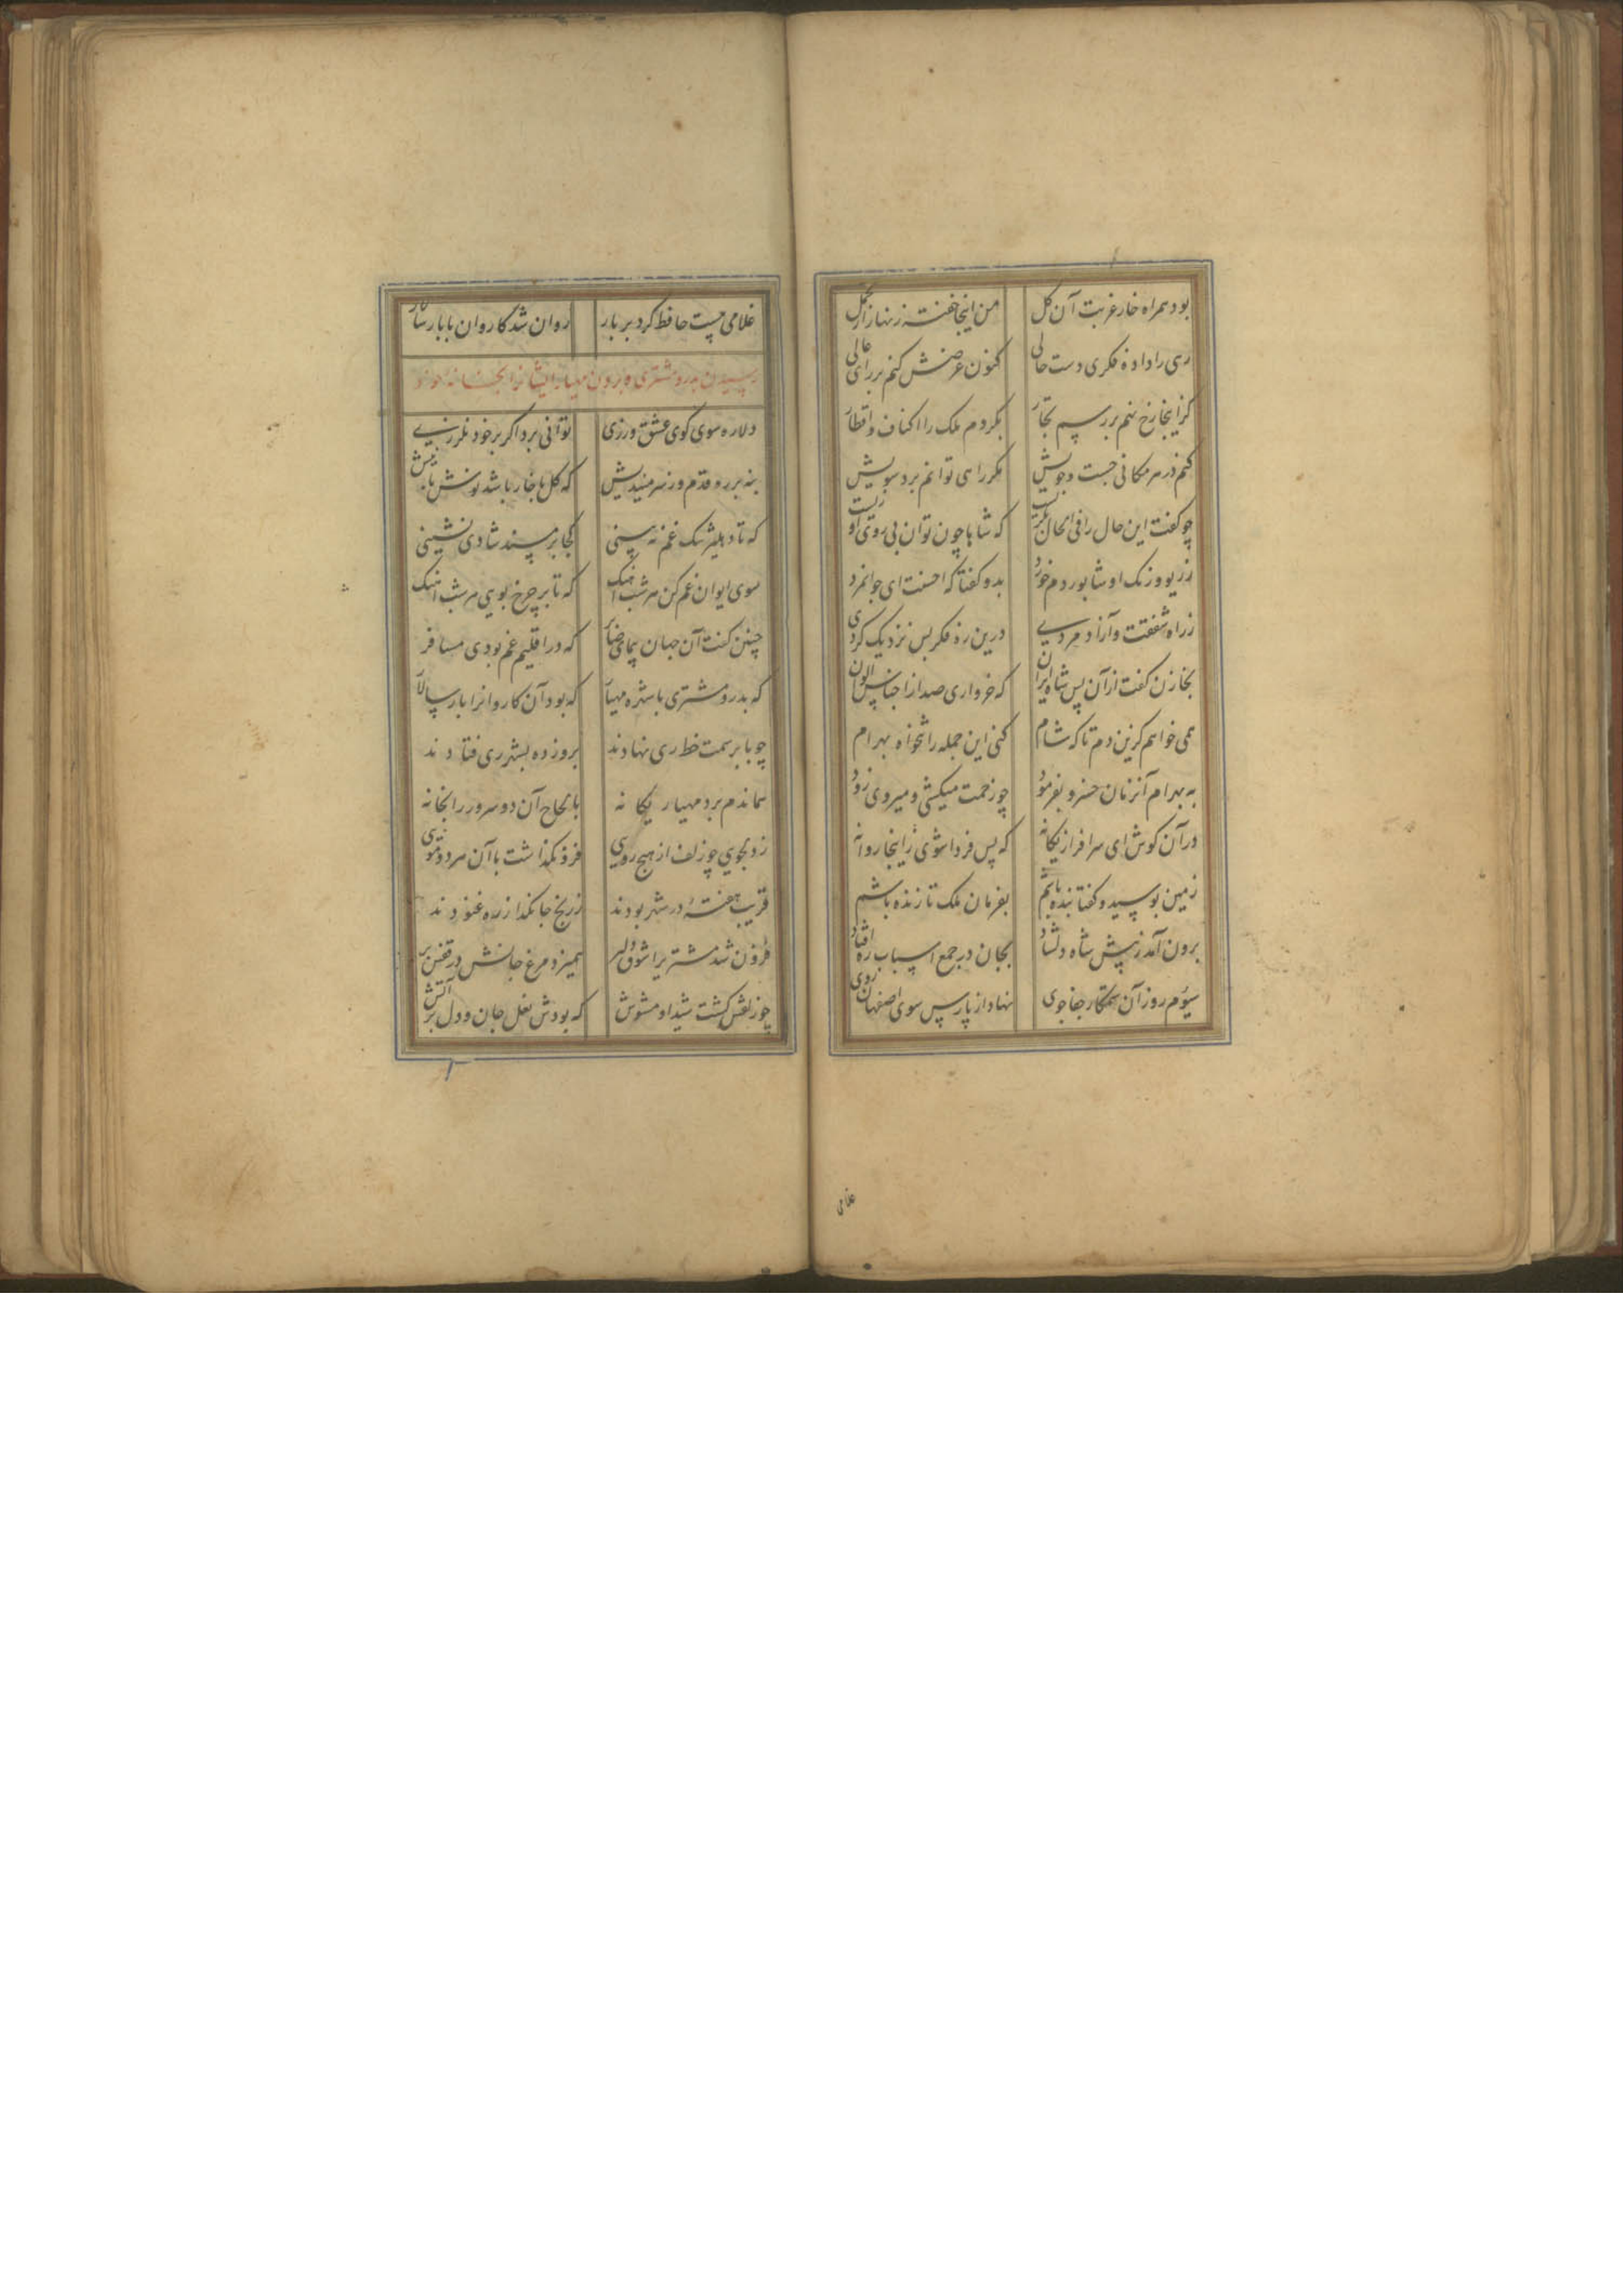 بود همراه خار غربت آن کل من اینجا خفته زنهار از تجمل
رهی را داده فکری دست حالی کنون عرضش کنم بر رای عالی
کزاینجا رخ نهم بر رسم تجار بکردم ملک را اکناف و اقطار
کنم در هر مکانی جست و جویش مکر راهی توانم برد سویش
چو کفت این حال را فی الحال بکریست که شاها چون توان بی روی او زیست
بدو کفتا که احسنت ای جوانمرد
ز راه شفقت و آزاد مردی درین ره فکر بس نزدیک کردی
بخازن کفت از آن پس شاه ایران که خرواری صد از اجناس الوان
همی خواهم کزین دم تا که شام کنی این جمله را تنخواه بهرام
به بهرام آنزمان خسرو بفرمود چو زحمت میکشی و میروی زود
در آن کوش ای سرافراز یکانه که پس فردا شوی زاینجا روانه
زمین بوسید و کفتا بنده باشم بفرمان ملک تا زنده باشم
برون آمد ز پیش شاه دلشاد بجان در جمع اسباب ره افتاد
سیوم روز آن ستمکار جفا جوی نهاد از پارس سوی اصفهان روی
غلامی
غلامی چست حافظ کرد بر بار روان شد کاروان با بار سالار
رسیدن بدر و مشتری و بردن مهیار ایشانرا بخانه خود
دلا ره سوی کوی عشق ورزی توانی برد اکر بر خود نلرزی
بنه بر ره قدم وز سر میندیش که کل با خار باشد نوش با نیش
که تا دهلیز تنک غم نه بینی کجا بر مسند شادی نشینی
سوی ایوان غم کن هر شب آهنک که تا بر چرخ بویی هر شب آهنک
چنین کفت آن جهان پیمای حاضر که در اقلیم غم بودی مسافر
که بدر و مشتری با شهره مهیار که بود آن کاروانرا بار سالار
چو با بر سمت خط ری نهادند بروز ده بشهر ری فتادند
هماندم برد مهیار یکانه بالحاح آن دو سرور را بخانه
ز دلجویی چو زلف از هیچ رویی فرو نکذاشت با آن هر دو مویی
قریب هفته در شهر بودند ز رنج جانکداز ره غنودند
فزون شد مشتریرا شوق دلبر همیزد مرغ جانش در قفس پر
چو زلفش کشت شیدا و مشوش که بودش نعل جان و دل بر آتش